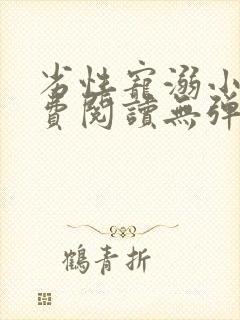 劣性寵溺小
費閱讀無彈
鶴青折